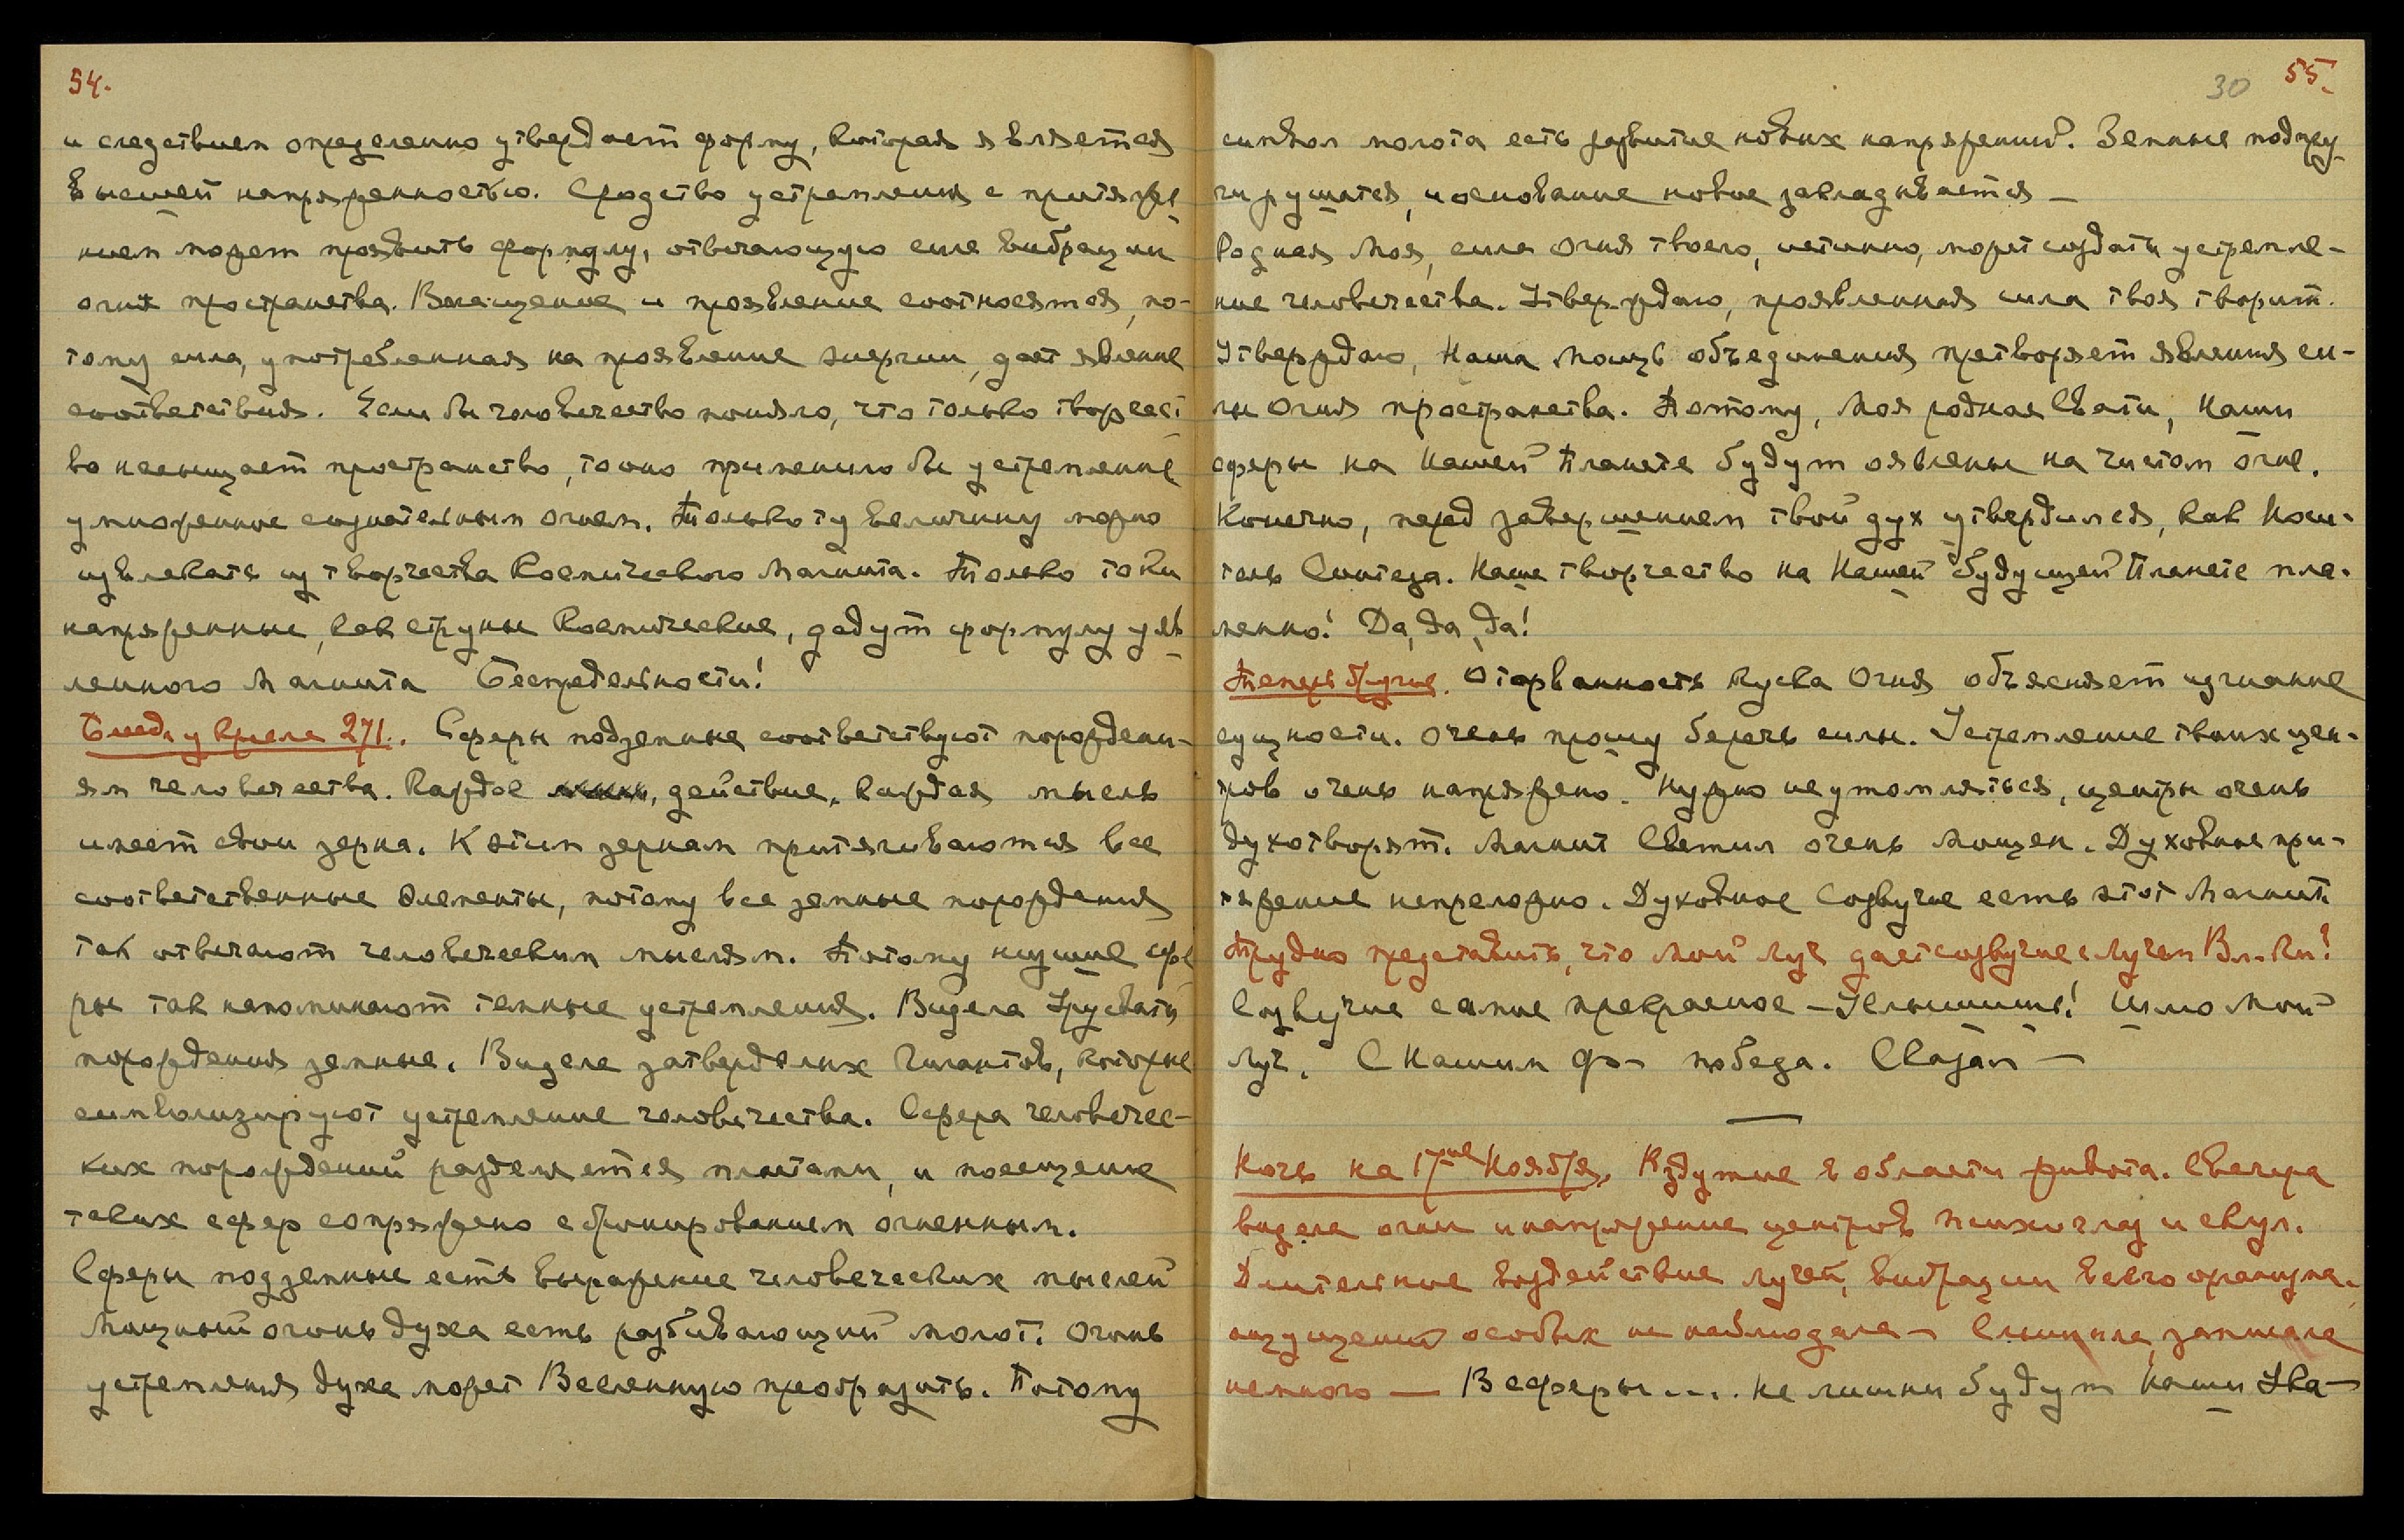 54.
и следствием определенно утверждает форму, которая является
высшей напряженностью. Сродство устремления с притяже
нием может проявить формулу, отвечающую силе вибрации
огня пространства. Вмещение и проявление соотносятся, по-
тому сила, употребленная на проявление энергии, дает явление
соответствия. Если бы человечество поняло, что только творчест
во насыщает пространство, точно применило бы устремление
умноженное сознательным огнем. Только ту величину можно
извлекать из творчества Космического Магнита. Только токи
напряженные, как струны Космические, дадут формулу уяв
ленного Магнита Беспредельности!
Сферы подземные соответствуют порождени-
ям человечества. Каждое действие, каждая мысль
имеет свои зерна. К этим зернам притягиваются все
соответственные элементы, потому все земные порождения
так отвечают человеческим мыслям. Потому низшие сфе
ры так напоминают темные устремления. Видела Урусвати
порождения земные. Видела затверделых гигантов, которые
символизируют устремление человечества. Сфера человечес-
ких порождений разделяется пластами, и посещение
таких сфер сопряжено с бронированием огненным.
Сферы подземные есть выражение человеческих мыслей
Мощный огонь духа есть разбивающий молот. Огонь
устремления духа может Вселенную преобразить. Потому
30 55.
символ молота есть развитие новых напряжений. Земные
рушатся, и основание новое закладывается —
Родная Моя, сила огня твоего, истинно, может создать устремле-
ние человечества. Утверждаю, проявленная сила твоя творит.
Утверждаю, Наша Мощь объединения претворяет явления си-
лы Огня пространства. Потому, Моя родная Свати, Наши
сферы на Нашей Планете будут оявлены на чистом огне.
Конечно, перед завершением твой дух утвердился, как Носи-
тель Синтеза. Наше творчество на Нашей будущей Планете пла-
менно! Да, да, да!
Теперь другие. Оторванность куска Огня объясняет изгнание
сущности. Очень прошу беречь силы. Устремление твоих цен-
тров очень напряжено. Нужно не утомляться, центры очень
духотворят. Магнит Светил очень мощен. Духовное при-
тяжение непреложно. Духовное Созвучие есть этот Магнит.
Трудно представить, что мой луч дает созвучие с Лучем Вл.
Созвучие самое прекрасное — Услышишь! Шлю Мой
Луч. С Нашим победа. Сказал —
Ночь на 17ое Ноября. Вздутие в области живота. С вечера
видела огни и напряжение центров
Длительное воздействие лучей, вибрации всего организма,
ощущений особых не наблюдала — Слышала, записала
немного — В сферы .... не лишни будут Наши Ука-